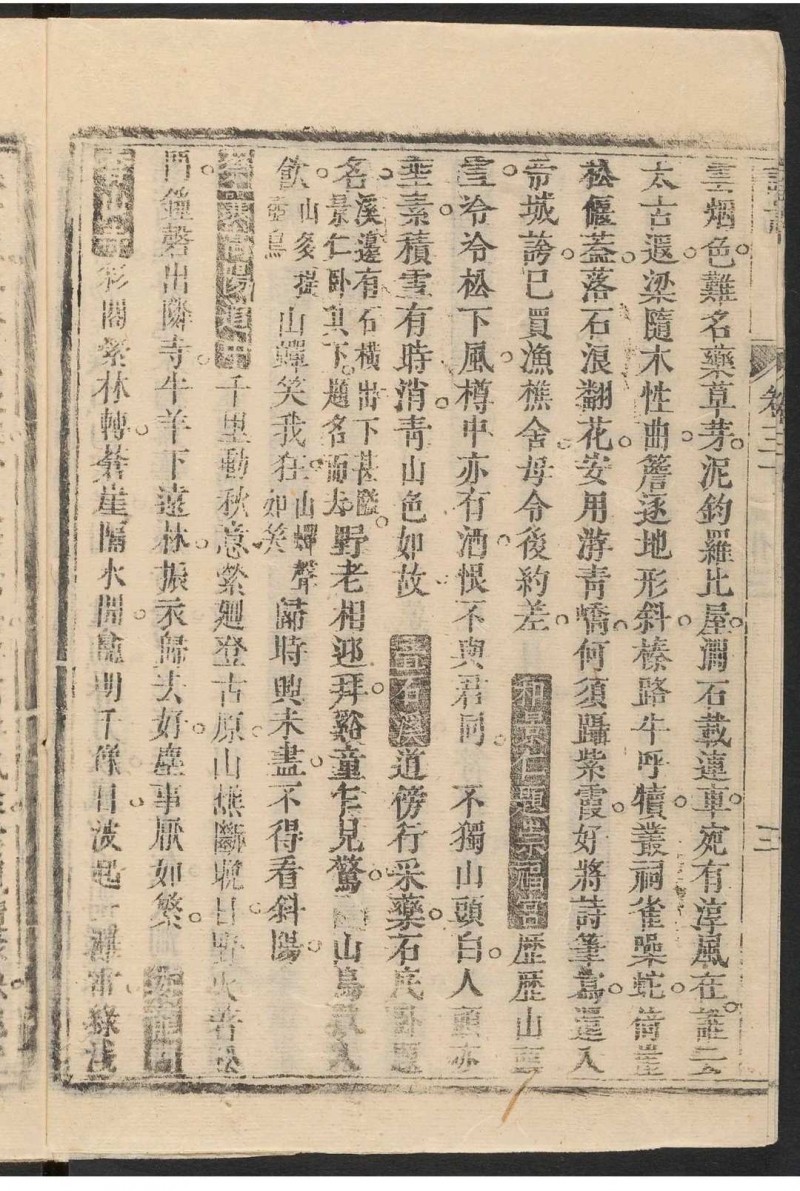 卷三 三
雲烟色難名藥草芽泥鈎羅比屋澗石載連車宛有淳風在誰云
太古遐梁隨木性曲簷逐地形斜榛路牛呼犢叢祠雀噪蛇荷
松偃蓋落石浪翻花安用游青嶠何須躡紫霞好將詩筆寫還入
帝城誇已買漁樵舍毋令後約差 和景仁題崇福宮 歷歷山
雪冷冷松下風樽中亦有酒恨不與君同 不獨山頭白人間亦
垂素積雪有時消青山色如故 疊石溪 道傍行采藥石底臥題
名溪邊有石橫出下甚隘景仁臥其下題名而去野老相迎拜谿童乍見驚 山鳥勸人
飲山多提壺鳥 山蟬笑我狂山蟬聲如笑 歸時興未盡不得看斜陽
千里動秋意縈廻登古原山樵斷晚日野火
門鐘磬出隣寺牛羊下遠林振衣歸去好塵事厭如繁
彩閣紫林轉蒼崖隔水開 明千條日波起一 雷綠淺